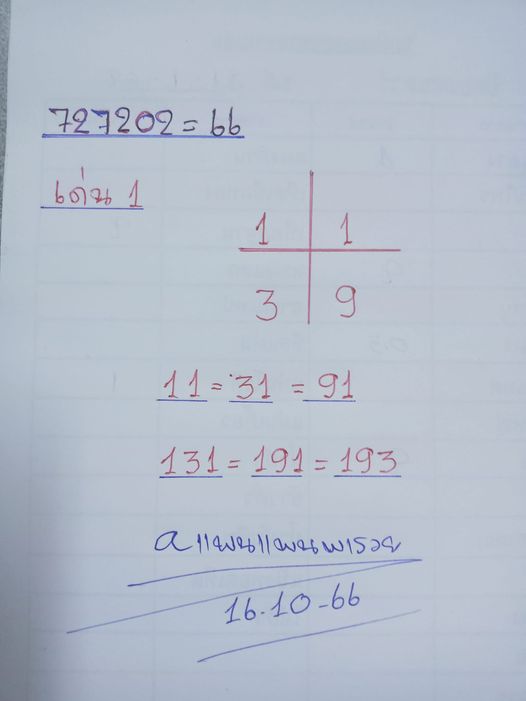 727202 = 66
เด่น 1
1 1
3 9
11 = 31 = 91
131 = 191 = 193
16.10-66